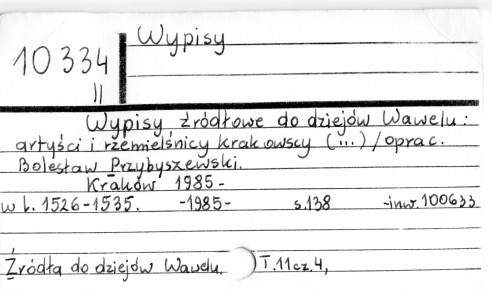 10 334
II
Wypisy
Wypisy źródłowe do dziejów Wawelu :
artyści i rzemieślnicy krakowscy (...) / oprac.
Bolesław Przybyszewski.
Kraków 1985 -
w l. 1526-1535. -1985- s.138 -inw.100633
Źródła do dziejów Wawelu. T.11cz.4,